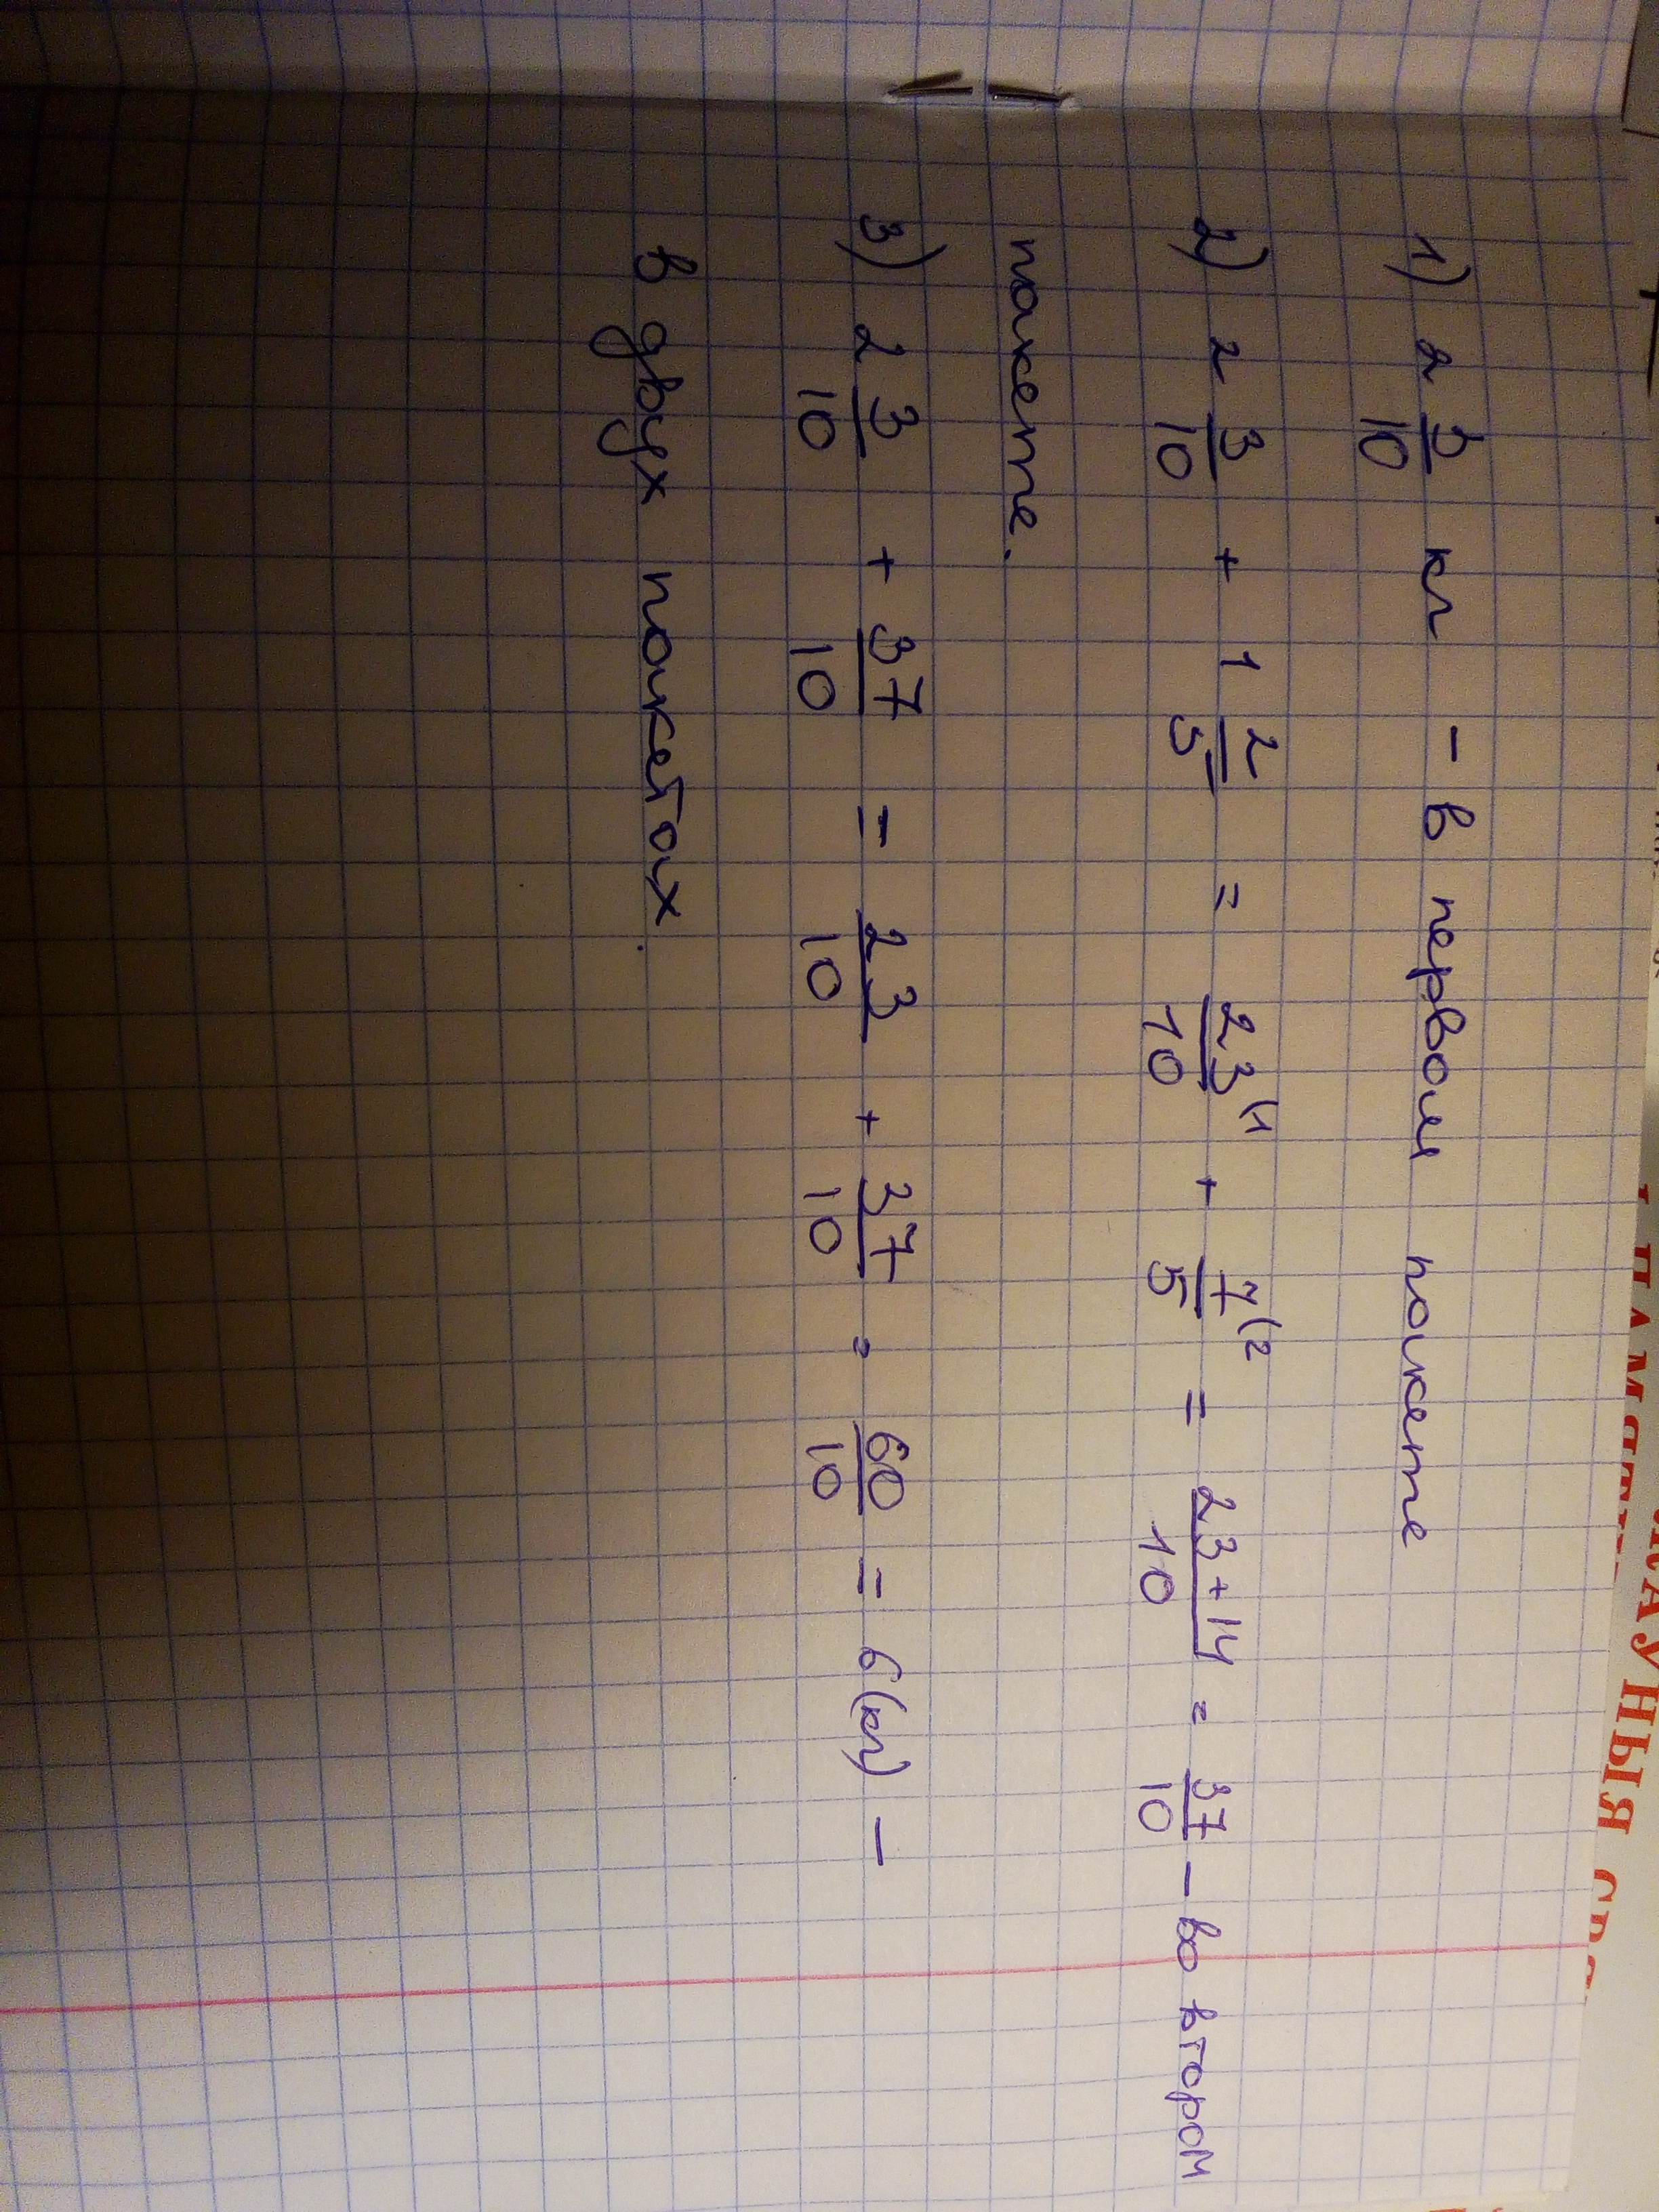 1) 2 3/10 кг - в первом пакете
2) 2 3/10 + 1 2/5 = 23/10 (1 + 7/5 (2 = 23+14/10 = 37/10 - во втором
пакете.
3) 2 3/10 + 37/10 = 23/10 + 37/10 = 60/10 = 6 (кг) -
в двух пакетах.